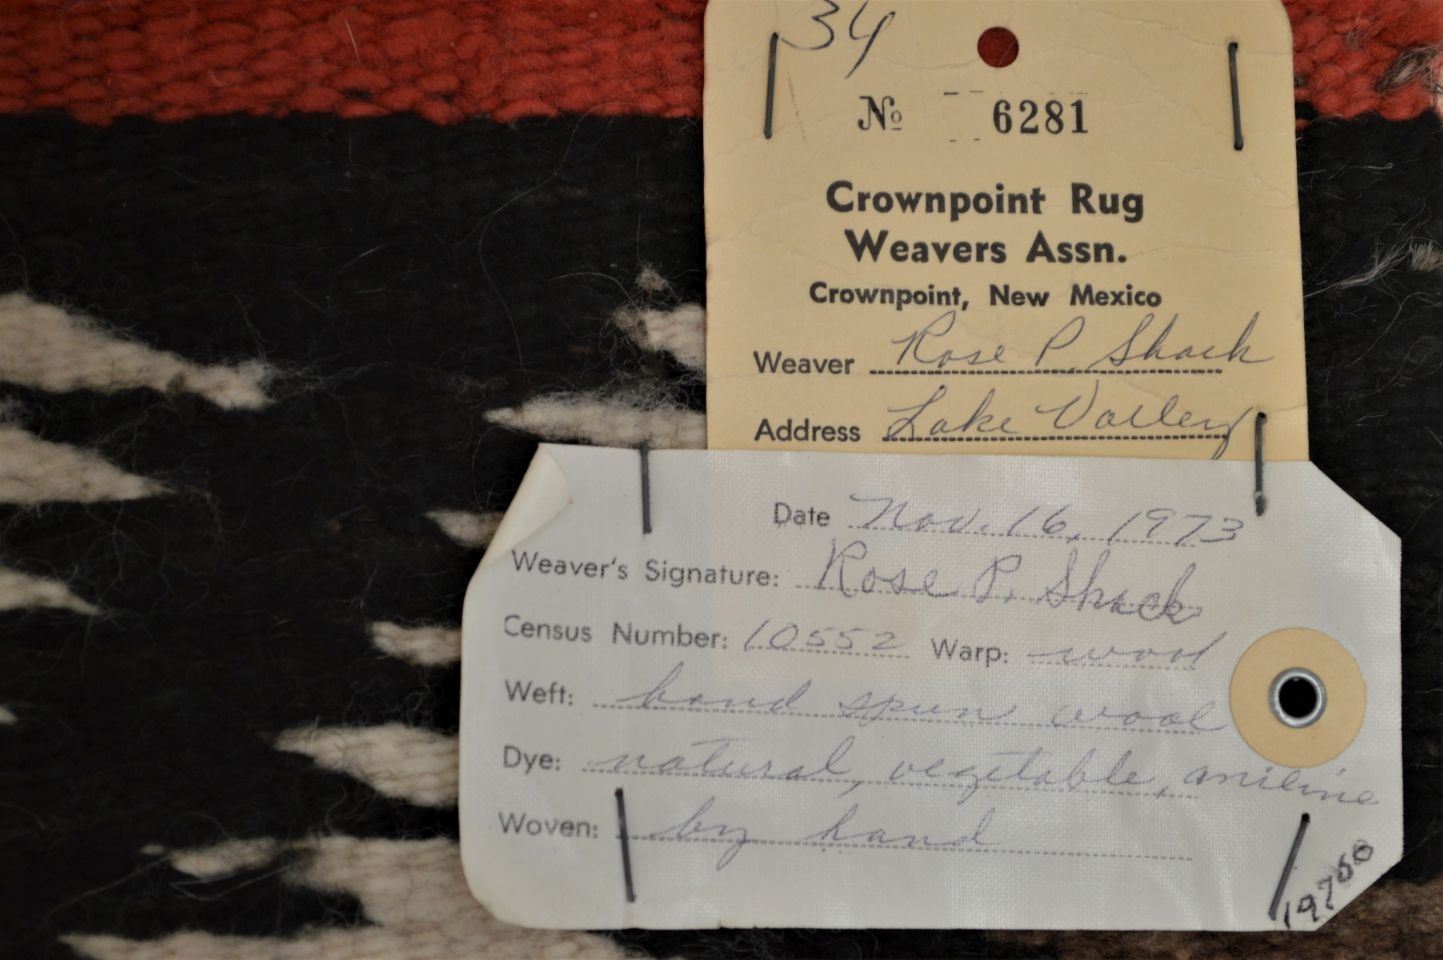 34
No 6281
Crownpoint Rug
Weavers Assn.
Crownpoint, New Mexico
Weaver Rose P. Shack
Address Lake Valley
Date Nov. 16, 1973
Weaver's Signature: Rose P. Shack
Census Number: 10552 Warp: wool
Weft: hand spun wool
Dye: natural, vegetable, aniline
Woven: by hand
19760